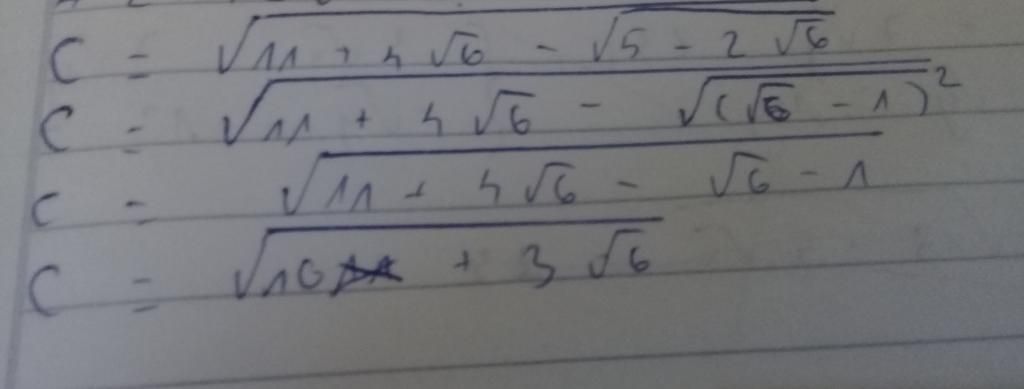 C = √(11 + 4√6 - √(5 - 2√6))
C = √(11 + 4√6 - √(√6 - 1)²)
C = √(11 + 4√6 - √6 - 1)
C = √(10 + 3√6)